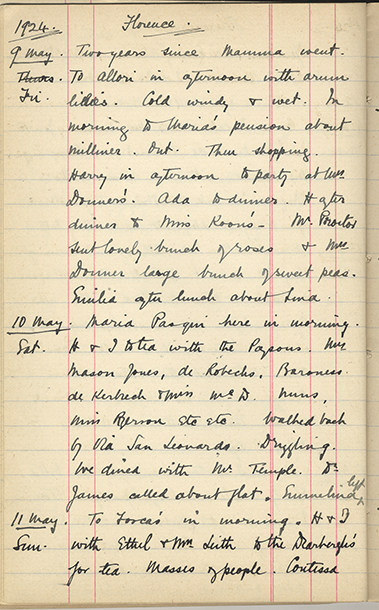 1924. Florence.
9 May. Two years since Mamma went.
Thurs. To Allori in afternoon with arum
Fri. lilies. Cold windy & wet. In
morning to Maria's pension about
milliner. Out. Then shopping.
Harry in afternoon to party at Mrs
Donner's. Ada to dinner. H after
dinner to Miss Koon's - Mr Proctor
sent lovely bunch of roses & Mrs
Donner large bunch of sweet peas.
Emilia after lunch about Lina.
10 May. Maria Pasqui here in morning.
Sat. H & I to tea with the Paysons. Mrs
Mason Jones, de Robecks, Baroness
de Kerbech & Miss McD. Nuns,
Miss Berson etc etc. Walked back
by Via San Leonardo. Drizzling.
We dined with Mr Temple. Dr
James called about flat. Emmelina left
11 May. To Forca's in morning. H & I
Sun. with Ethel & Mrs Leith to the Dearbergh's
for tea. Masses of people. Contessa